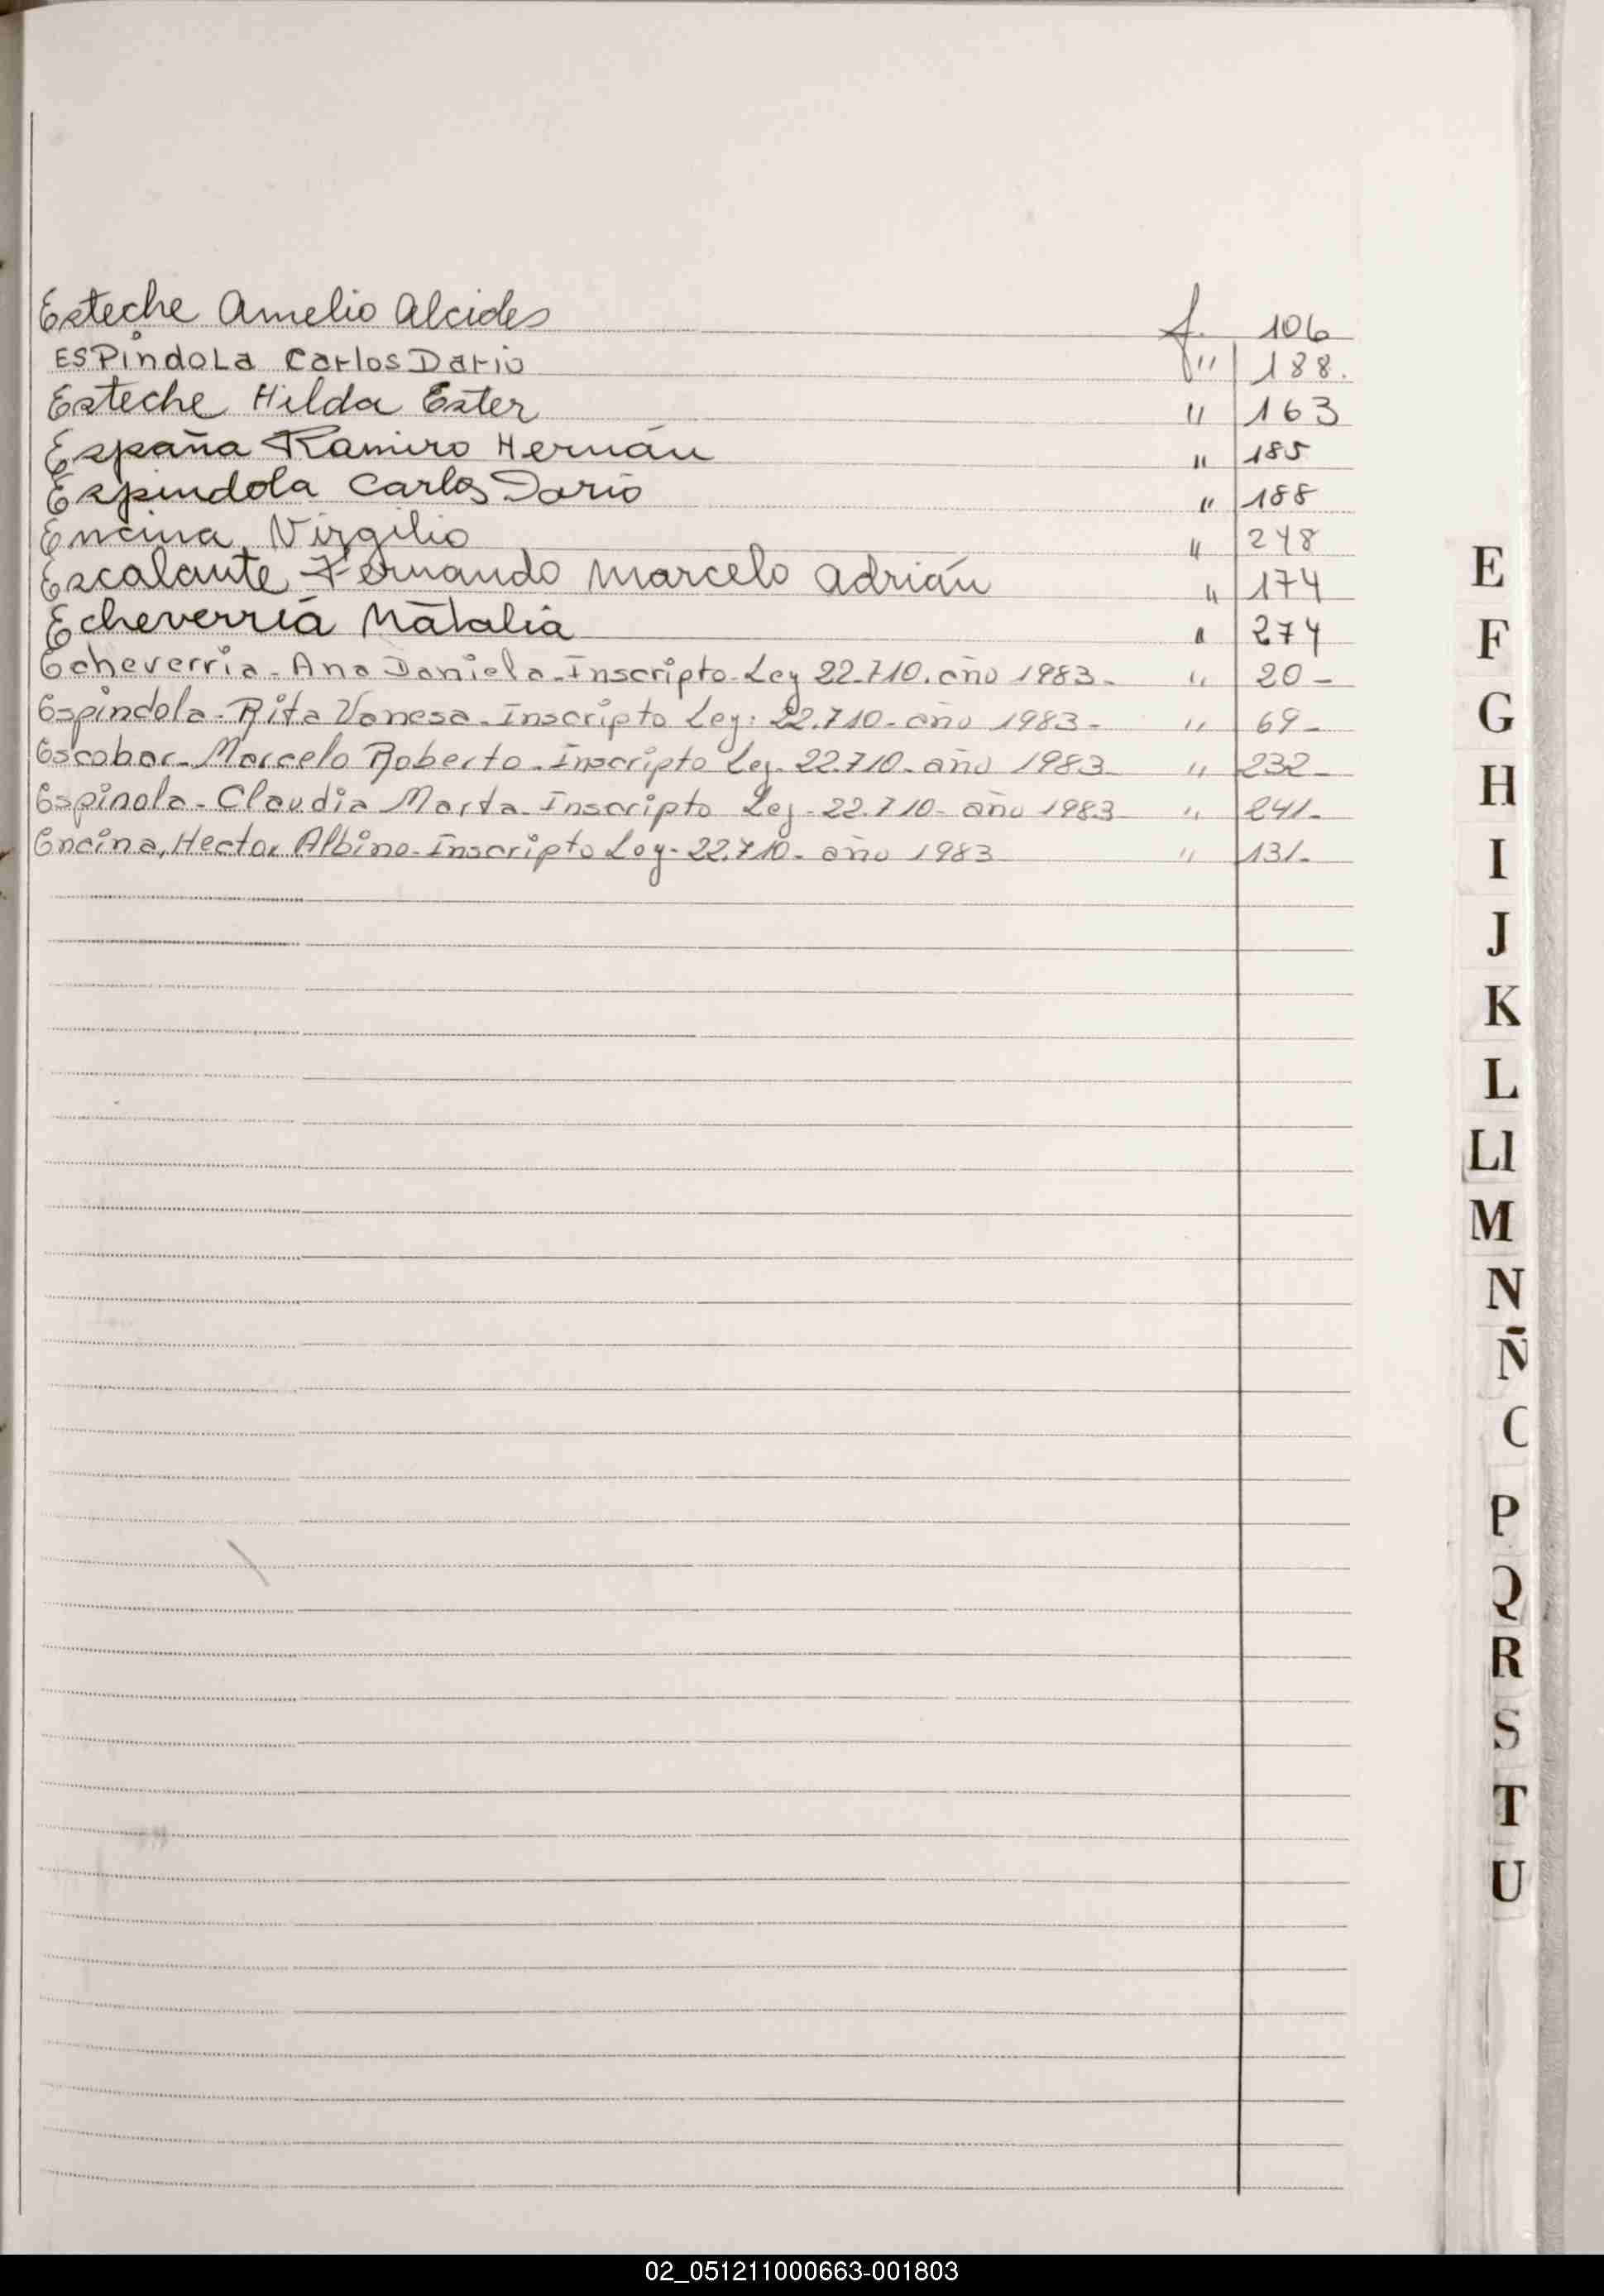 Esteche Amelio Alcides f. 106
ESPindoLa Carlos Dario " 188.
Esteche Hilda Ester " 163
España Ramiro Hernán " 185
Espindola Carlos Dario " 188
Encina, Virgilio " 248
Escalante Fernando Marcelo Adrián " 174
Echeverría Natalia " 274
Echeverria - Ana Daniela - Inscripto - Ley 22.710. año 1983 - " 20 -
Espindola - Rita Vanesa - Inscripto Ley: 22.710 - año 1983 - " 69 -
Escobar - Marcelo Roberto - Inscripto Ley - 22.710 - año 1983 " 232 -
Espinola - Claudia Marta - Inscripto Ley - 22.710 - año 1983 " 241 -
Encina, Hector Albino - Inscripto Ley - 22.710 - año 1983 " 131 -
E
F
G
H
I
J
K
L
Ll
M
N
Ñ
O
P
Q
R
S
T
U
02_051211000663-001803